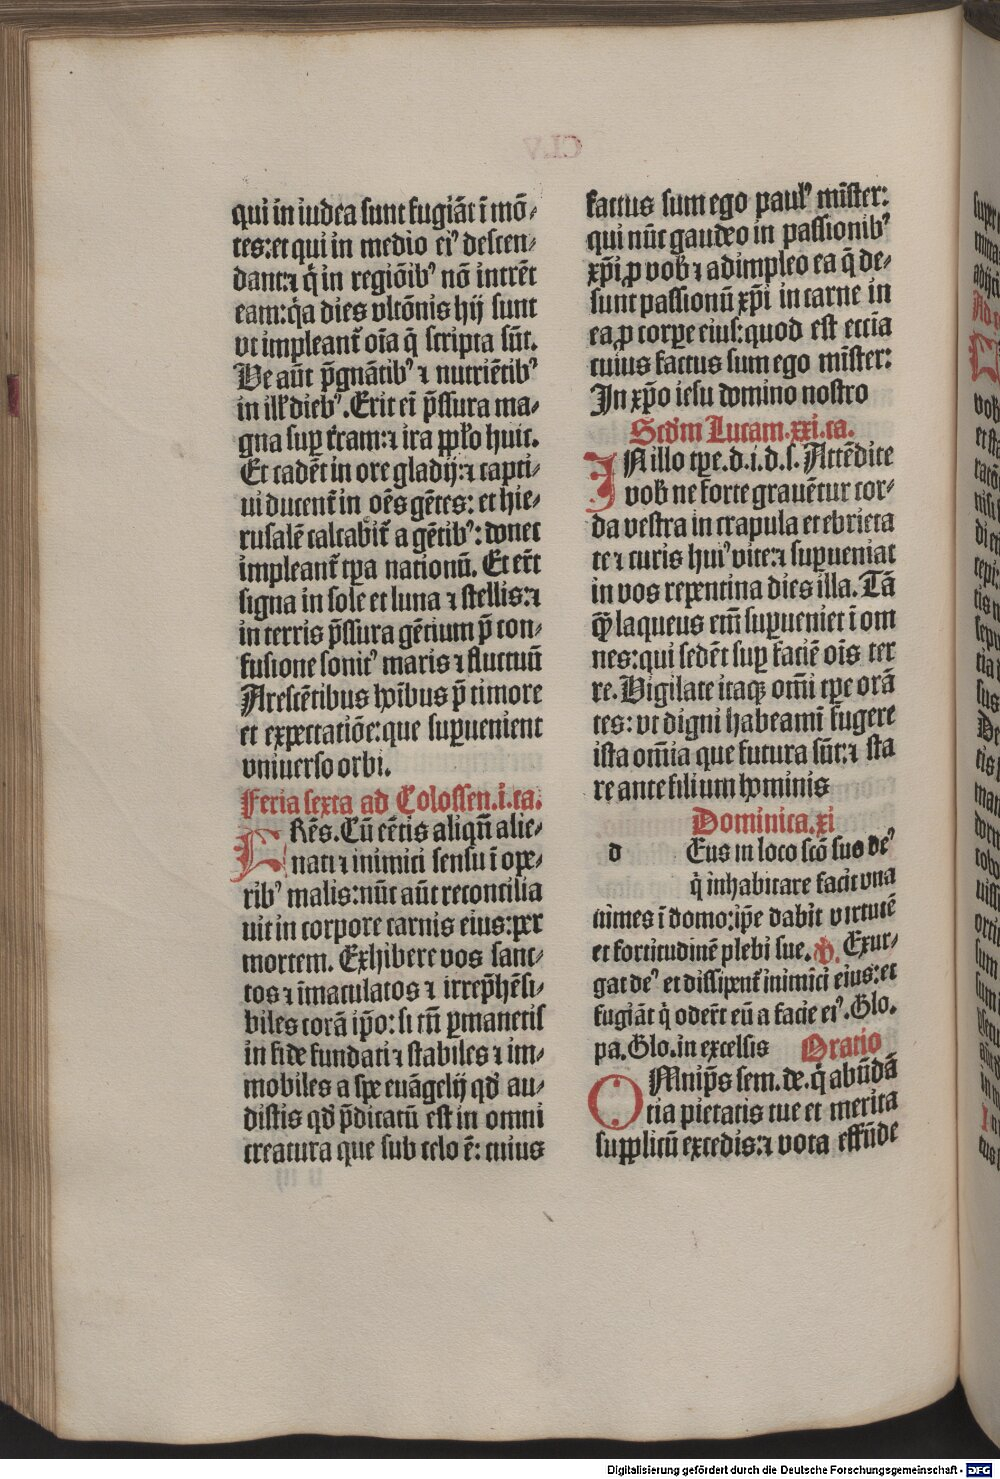 qui in iudea sunt fugiãt ĩ mõ-
tes: et qui in medio eiꝰ descen-
dant: ⁊ q̇ in regiõibꝰ nõ intrẽt
eam: q̇a dies vltõnis hij sunt
vt impleant̃ oĩa q̃ scripta sũt.
Ve aũt p̃gnãtibꝰ ⁊ nutriẽtibꝰ
in ill' diebꝰ. Erit ei̅ p̃ssura ma-
gna suꝑ t̃ram: ⁊ ira pp̱ło huic.
Et cadẽt in ore gladij: ⁊ capti-
ui ducent̃ in oẽs gẽtes: et hie-
rusalẽ calcabit̃ a gẽtibꝰ: donec
impleant̃ tp̱a nationũ. Et er̃t
signa in sole et luna ⁊ stellis: ⁊
in terris p̃ssura gẽtium p̃ con-
fusione sonitꝰ maris ⁊ fluctuũ
Arescẽtibus hoĩbus p̃ timore
et expectatiõe: que suꝑuenient
vniuerso orbi.
Feria sexta ad Colossen. i. ca.
FRẽs. Cũ eẽtis aliqñ alie-
nati ⁊ inimici sensu ĩ ope-
ribꝰ malis: nũc aũt reconcilia
uit in corpore carnis eius: per
mortem. Exhibere vos sanc-
tos ⁊ ĩmaculatos ⁊ irrep̃hẽsi-
biles corã ip̃o: si tñ ꝑmanetis
in fide fundati ⁊ stabiles ⁊ im-
mobiles a spe euãgelij qđ au-
distis qđ p̃dicatũ est in omni
creatura que sub celo ẽ: cuius
factus sum ego paulꝰ mĩster:
qui nũc gaudeo in passionibꝰ
xp̃i ꝓ vob̵ ⁊ adimpleo ea q̃ de-
sunt passionũ xp̃i in carne in
ea ꝓ corpe eius: quod est eccĩa
cuius factus sum ego mĩster:
In xp̃o iesu domino nostro
Scd̃m Lucam. xxi. ca.
IN illo tp̱e. d. i. d. s. Attẽdite
vob̵ ne forte grauẽtur cor-
da vestra in crapula et ebrieta
te ⁊ curis huiꝰ vite: ⁊ suꝑueniat
in vos repentina dies illa. Tã
q̃ laqueus em̃ suꝑueniet ĩ om
nes: qui sedẽt suꝑ faciẽ oĩs ter
re. Vigilate itaqꝫ om̃i tp̱e orã
tes: vt digni habeamĩ fugere
ista om̃ia que futura sũt: ⁊ sta
re ante filium hominis
Dominica. xi
d Eus in loco scõ suo deꝰ
q̇ inhabitare facit vna
nimes ĩ domo: ip̃e dabit virtutẽ
et fortitudinẽ plebi sue. ℣. Exur-
gat deꝰ et dissipent̃ inimici eius: et
fugiãt q̇ oder̃t eũ a facie eiꝰ. Glo.
pa. Glo. in excelsis Oratio
OMnip̃s sem. de. q̇ abũdã
tia pietatis tue et merita
supplicũ excedis: ⁊ vota effũde
Digitalisierung gefördert durch die Deutsche Forschungsgemeinschaft - DFG